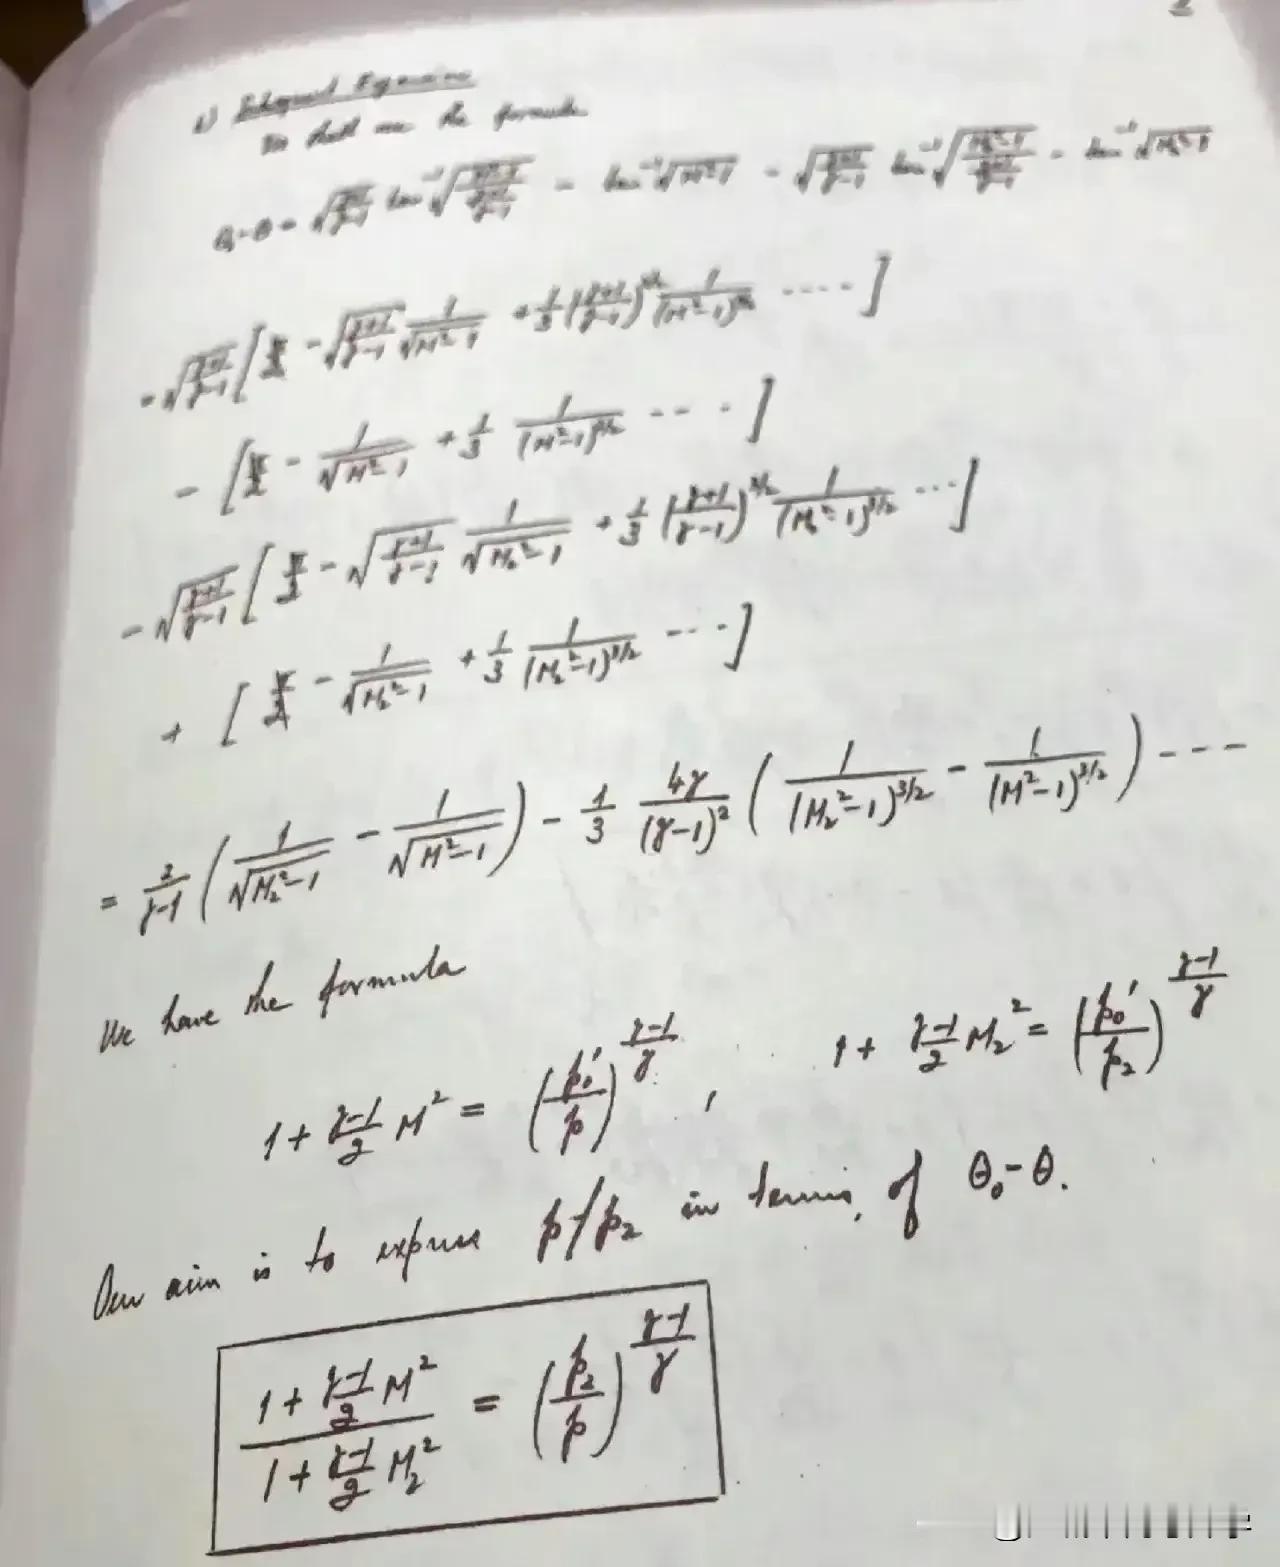 2
Subsequent Expansion
We shall use the formula
θ₀-θ = √((γ+1)/(γ-1)) tan⁻¹√((M²-1)/((γ+1)/(γ-1))) - tan⁻¹√(M²-1) - √((γ+1)/(γ-1)) tan⁻¹√((M₂²-1)/((γ+1)/(γ-1))) - tan⁻¹√(M₂²-1)
= √((γ+1)/(γ-1)) [π/2 - √((γ+1)/(γ-1)) 1/√(M²-1) + 1/3 ((γ+1)/(γ-1))^(3/2) 1/(M²-1)^(3/2) ....]
- [π/2 - 1/√(M²-1) + 1/3 1/(M²-1)^(3/2) ....]
- √((γ+1)/(γ-1)) [π/2 - √((γ+1)/(γ-1)) 1/√(M₂²-1) + 1/3 ((γ+1)/(γ-1))^(3/2) 1/(M₂²-1)^(3/2) ...]
+ [π/2 - 1/√(M₂²-1) + 1/3 1/(M₂²-1)^(3/2) ....]
= 2/(γ-1) (1/√(M₂²-1) - 1/√(M²-1)) - 1/3 4γ/(γ-1)² (1/(M₂²-1)^(3/2) - 1/(M²-1)^(3/2)) ---
We have the formula
1 + (γ-1)/2 M² = (p₀'/p)^((γ-1)/γ) , 1 + (γ-1)/2 M₂² = (p₀'/p₂)^((γ-1)/γ)
Our aim is to express p/p₂ in terms of θ₀-θ.
(1 + (γ-1)/2 M²)/(1 + (γ-1)/2 M₂²) = (p₂/p)^((γ-1)/γ)